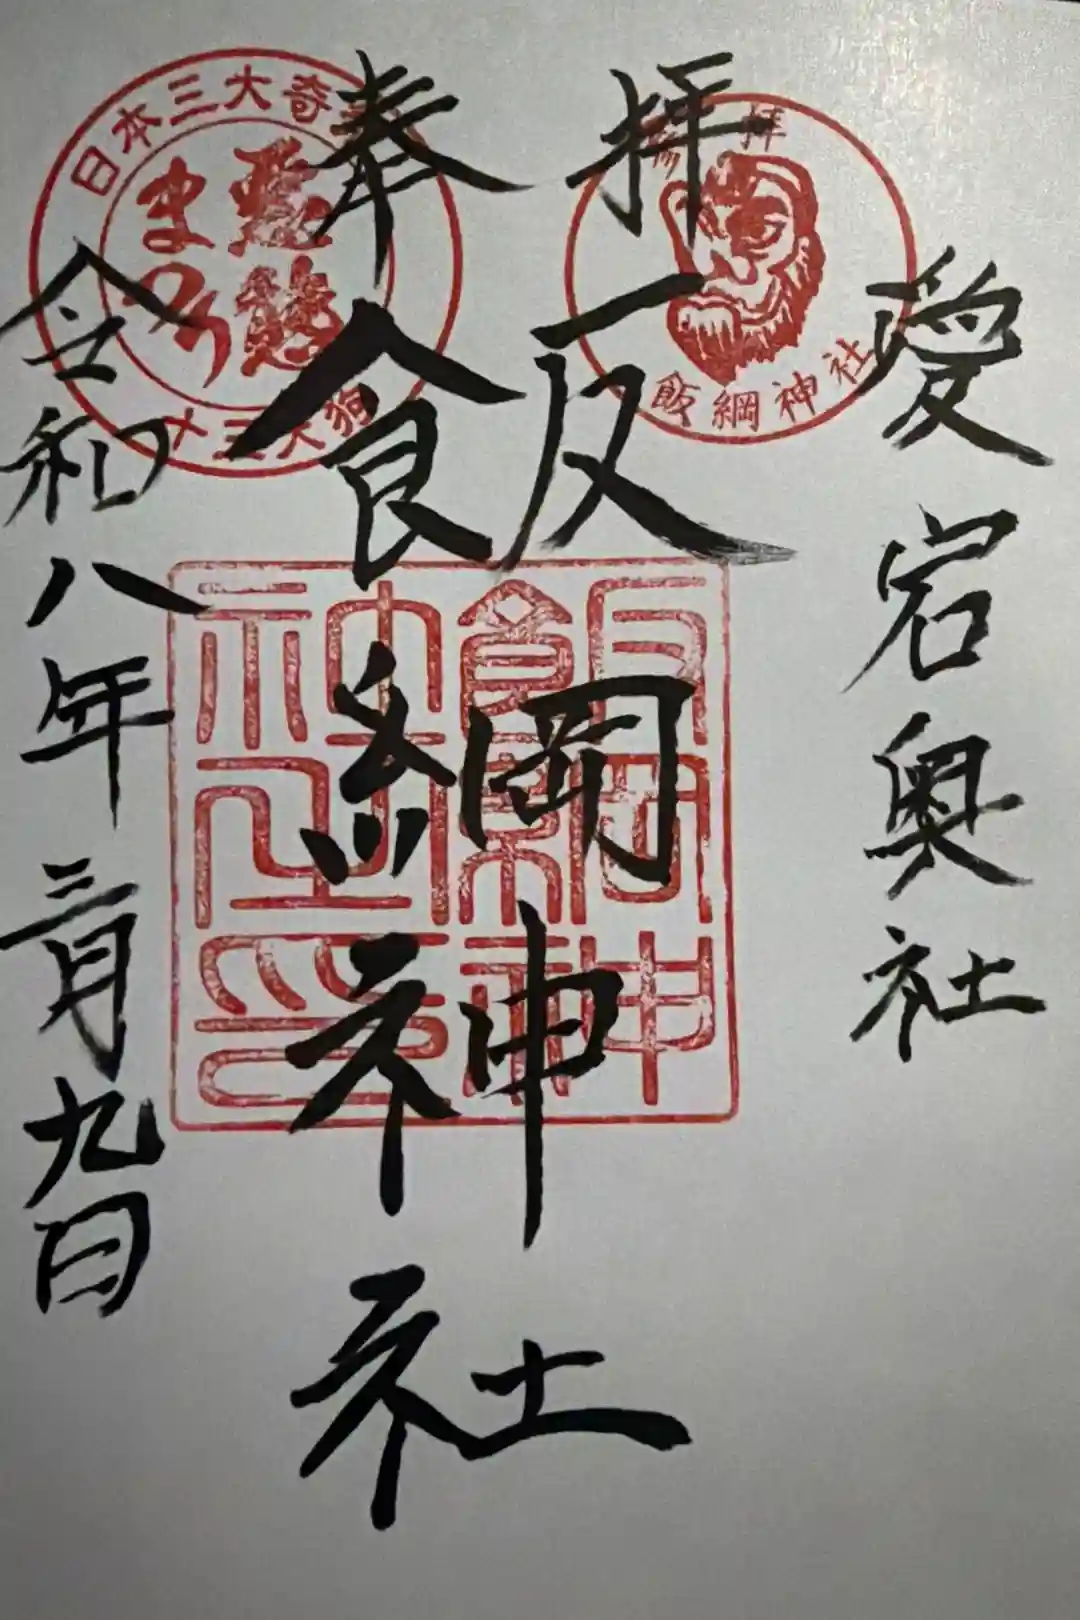 愛宕奥社
奉拝
飯綱神社
令和八年三月九日
参拝
飯綱神社
日本三大奇
悪態
まつり
十三天狗
飯綱神
社
印